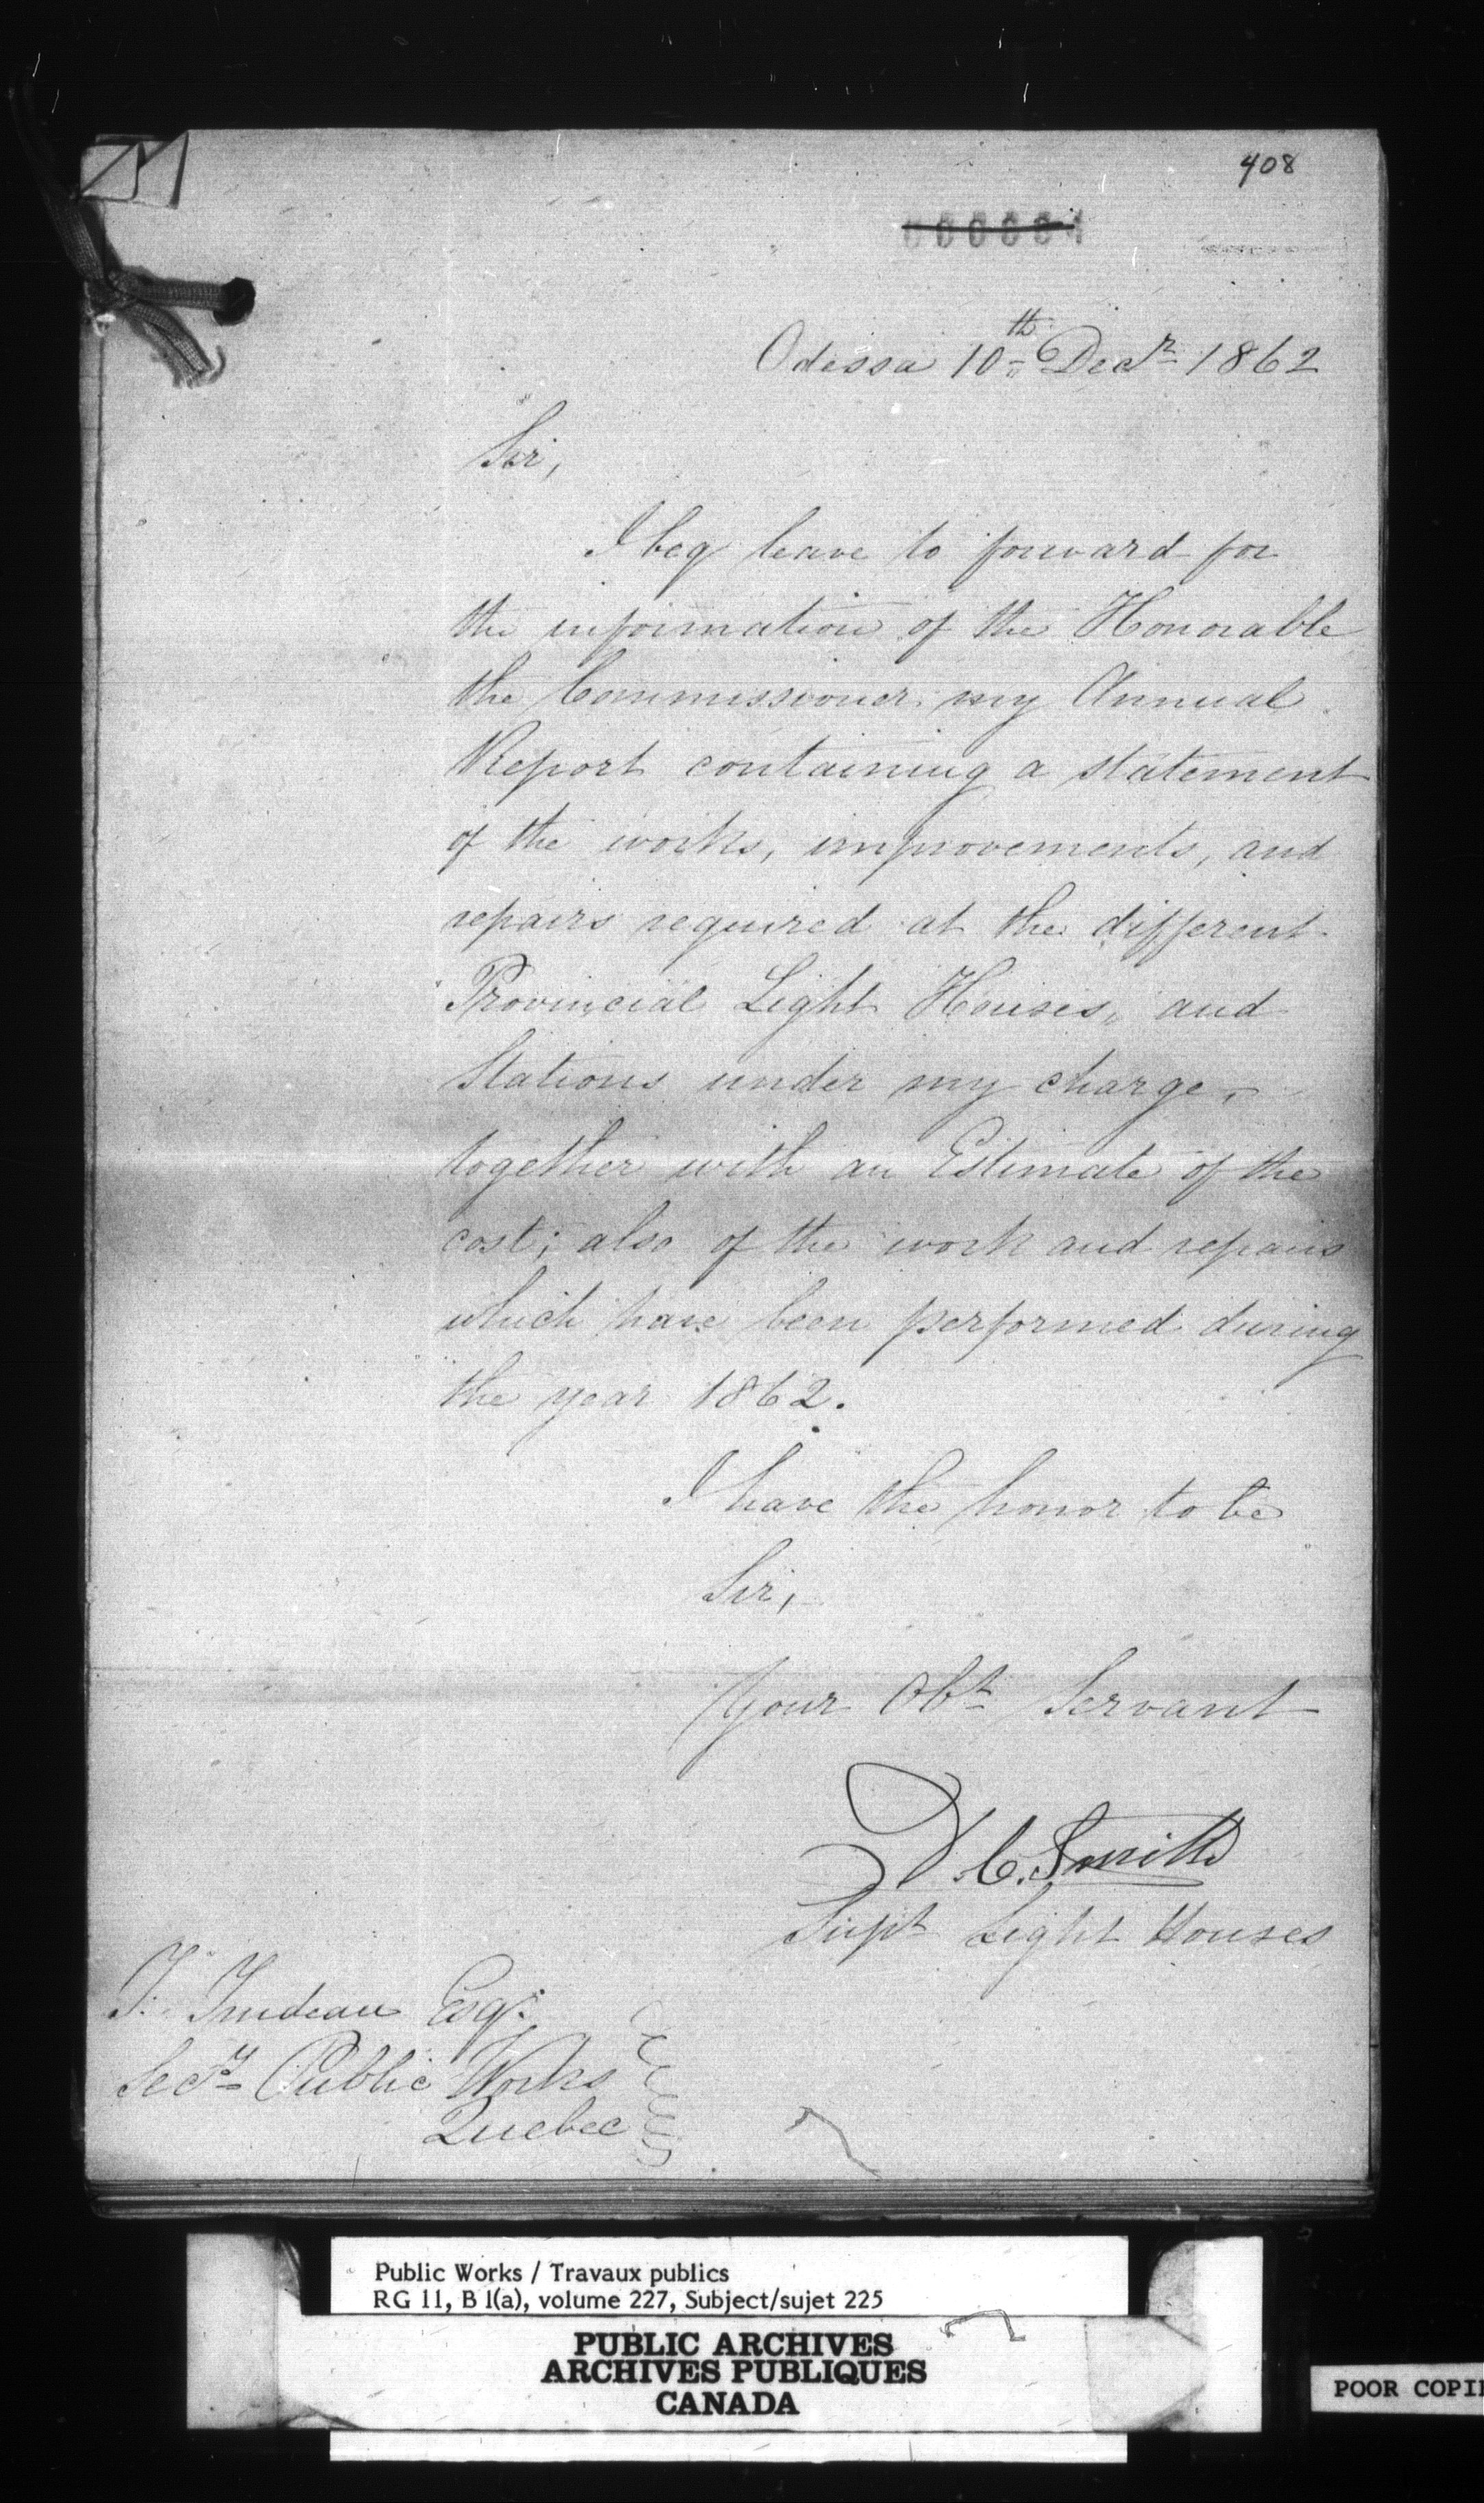 408
Odessa 10th Decr 1862
Sir,
I beg leave to forward for
the information of the Honorable
the Commissioner my Annual
Report containing a statement
of the works, improvements, and
repairs required at the different
Provincial Light Houses, and
Stations under my charge,
together with an Estimate of the
cost; also of the work and repairs
which have been performed during
the year 1862.
I have the honor to be
Sir,
Your Obt Servant
D. C. Smith
Supt Light Houses
T. Trudeau Esqr
Secy Public Works
Quebec
Public Works / Travaux publics
RG 11, B 1(a), volume 227, Subject/sujet 225
PUBLIC ARCHIVES
ARCHIVES PUBLIQUES
CANADA
POOR COPI